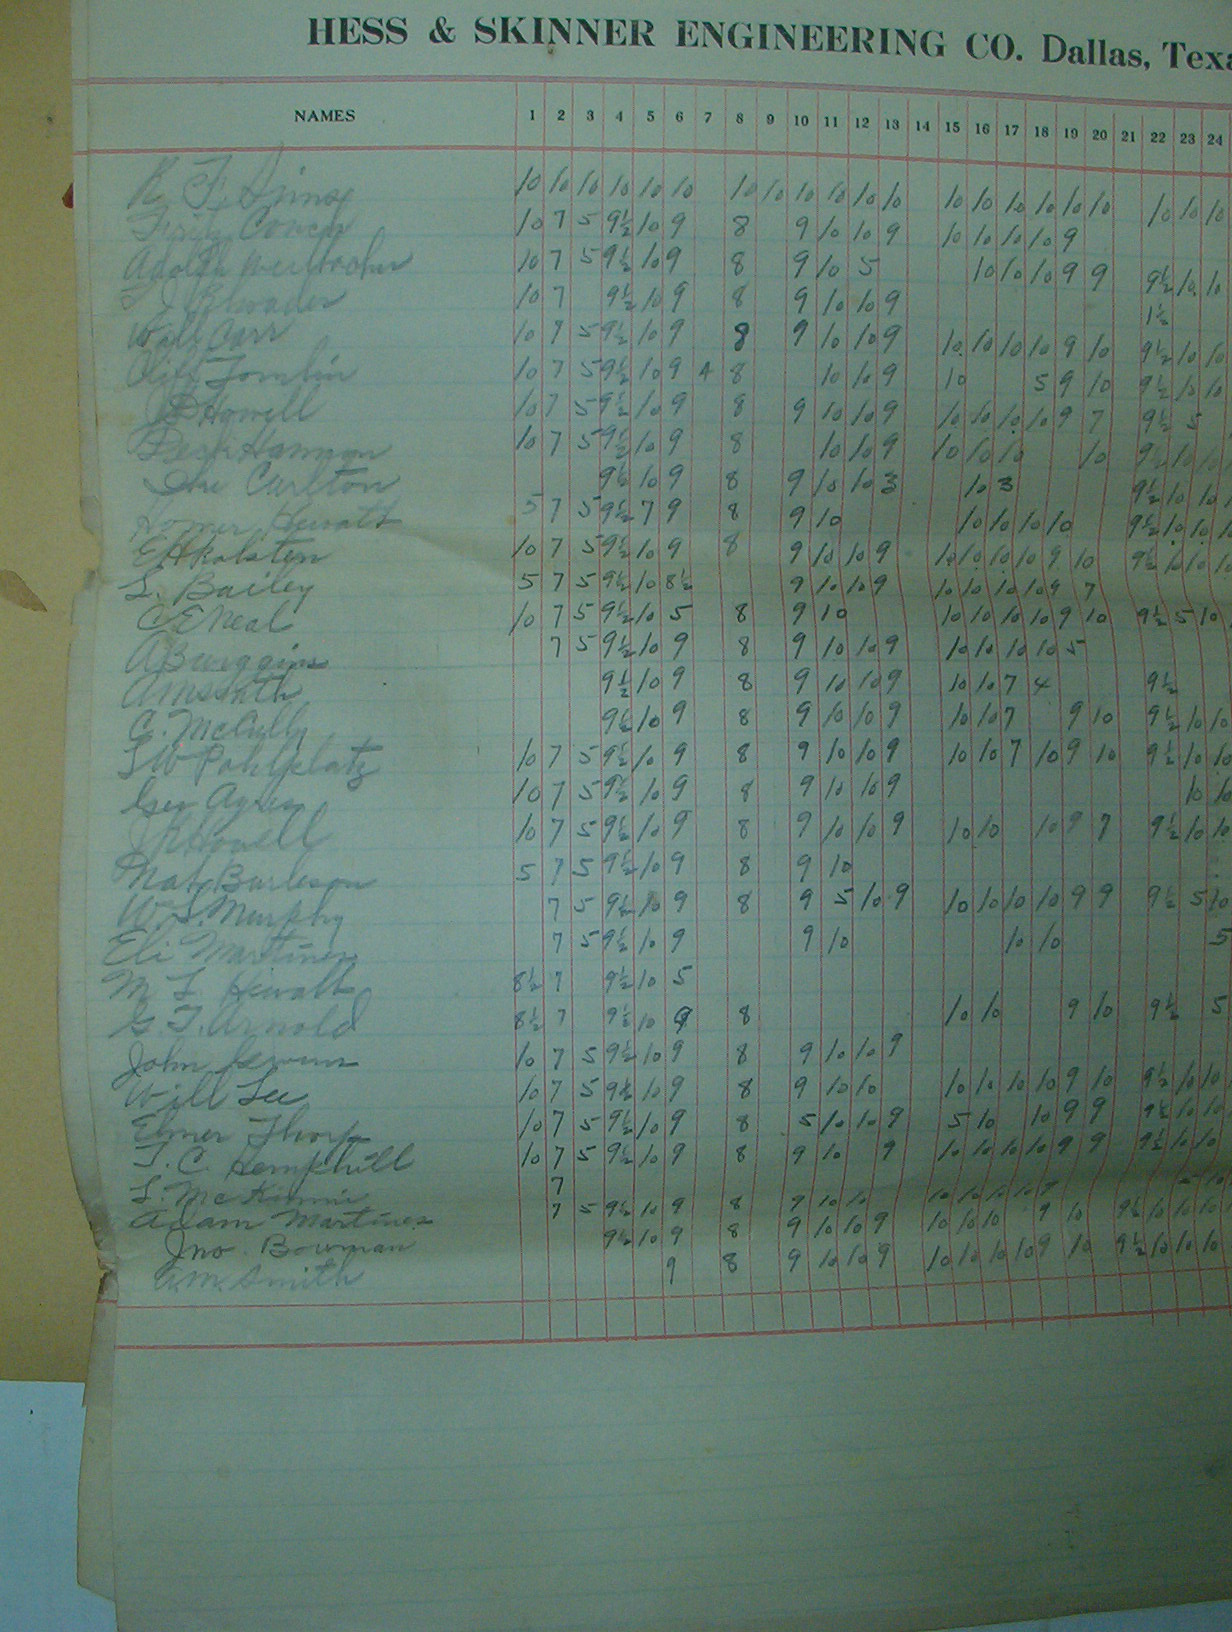 HESS & SKINNER ENGINEERING CO. Dallas, Texa
NAMES 1 2 3 4 5 6 7 8 9 10 11 12 13 14 15 16 17 18 19 20 21 22 23 24
10 10 10 10 10 10 10 10 10 10 10 10 10 10 10 10 10 10 10 10 10
10 7 5 9½ 10 9 8 9 10 10 9 10 10 10 10 9
Adolph 10 7 5 9½ 10 9 8 9 10 5 10 10 10 9 9 9½ 10 10
10 7 9½ 10 9 8 9 10 10 9 1½
Walt Carr 10 7 5 9½ 10 9 8 9 10 10 9 10 10 10 10 9 10 9½ 10 10
Cliff Tomlin 10 7 5 9½ 10 9 4 8 10 10 9 10 5 9 10 9½ 10 10
Howell 10 7 5 9½ 10 9 8 9 10 10 9 10 10 10 10 9 7 9½ 5
10 7 5 9½ 10 9 8 10 10 9 10 10 10 10 9½ 10 10
Carlton 9½ 10 9 8 9 10 10 3 10 3 9½ 10 10
Homer 5 7 5 9½ 7 9 8 9 10 10 10 10 10 9½ 10 10
10 7 5 9½ 10 9 8 9 10 10 9 10 10 10 10 9 10 9½ 10 10 10
L. Bailey 5 7 5 9½ 10 8½ 9 10 10 9 10 10 10 10 9 7
C E Neal 10 7 5 9½ 10 5 8 9 10 10 10 10 10 9 10 9½ 5 10
7 5 9½ 10 9 8 9 10 10 9 10 10 10 10 5
9½ 10 9 8 9 10 10 9 10 10 7 4 9½
C. McCully 9½ 10 9 8 9 10 10 9 10 10 7 9 10 9½ 10 10
Pohlplatz 10 7 5 9½ 10 9 8 9 10 10 9 10 10 7 10 9 10 9½ 10 10
Geo 10 7 5 9½ 10 9 8 9 10 10 9 10 10
J R Howell 10 7 5 9½ 10 9 8 9 10 10 9 10 10 10 9 7 9½ 10 10
Nat Burleson 5 7 5 9½ 10 9 8 9 10
W. S. Murphy 7 5 9½ 10 9 8 9 5 10 9 10 10 10 10 9 9 9½ 5 10
Eli Martines 7 5 9½ 10 9 9 10 10 10 5
M 8½ 7 9½ 10 5
G. T. Arnold 8½ 7 9½ 10 9 8 10 10 9 10 9½ 5
John 10 7 5 9½ 10 9 8 9 10 10 9
Will Lee 10 7 5 9½ 10 9 8 9 10 10 10 10 10 10 9 10 9½ 10 10
Elmer Thorp 10 7 5 9½ 10 9 8 5 10 10 9 5 10 10 9 9 9½ 10 10
T. C. Hemphill 10 7 5 9½ 10 9 8 9 10 9 10 10 10 10 9 9 9½ 10 10
L. McKinnie 7
Adam Martines 7 5 9½ 10 9 8 9 10 10 10 10 10 10 9
Jno Bowman 9½ 10 9 8 9 10 10 9 10 10 10 9 10 9½ 10 10 10
A.M. Smith 9 8 9 10 10 9 10 10 10 10 9 10 9½ 10 10 10